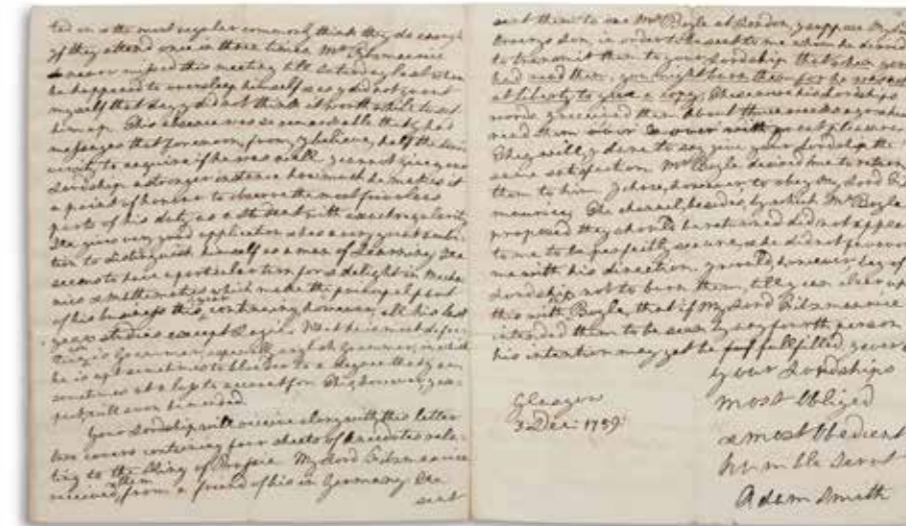 ted on is the most regular commonly think they do enough
if they attend once in three times. Mr Fitzmaurice
never missed this meeting till Saturday last when
he happened to oversleep himself as I had not
myself that day I did not think it worth while to
him up. This absence was so remarkable that I had
messages that forenoon, from, I believe, half the
versity to enquire if he was well. I cannot give your
Lordship a stronger instance how much he makes it
a point of honour to observe the most frivolous
parts of his duty as a student with exact regularity
He gives very good application & has a very great ambi-
tion to distinguish himself as a man of Learning. He
seems to have a particular turn for & delight in Mecha-
nics & mathematics which make the principal part
of his business this year, continuing however, all his last
years studies except Logic. What he is most defec-
tive in is Grammar, especially english Grammar, in which
he is apt sometimes to blunder to a degree that I am
sometimes at a loss to account for. This, however, I ex-
pect, will soon be mended.
Your Lordship will receive along with this letter
two covers containing four sheets of Anecdotes rela-
ting to the King of Prussia. My Lord Fitzmaurice
received them from a friend of his in Germany. He
sent
sent them to one Mr Boyle at London, I suppose My
Orrerys Son, in order to be sent to me whom he desired
to transmit them to your Lordship that when you
had read them, you might burn them for he was not
at liberty to give a copy. These were his Lordships
words. I received them about three weeks ago & have
read them over & over with great pleasure.
They will, I dare to say give your Lordship the
same satisfaction. Mr Boyle desired me to return
them to him. I chose, however to obey My Lord Fitz
maurice. The channel, besides, by which Mr Boyle
proposed they should be returned did not appear
to me to be perfectly secure, & he did not favour
me with his direction. I would, however beg of
Lordship not to burn them, till you clear up
this with Mr Boyle, that if My Lord Fitzmaurice
intended them to be seen by any fourth person
his intention may yet be fulfilled. I ever
your Lordships
most Obliged
& most Obedient
humble Servt
Adam Smith
Glasgow
3 Dec: 1759